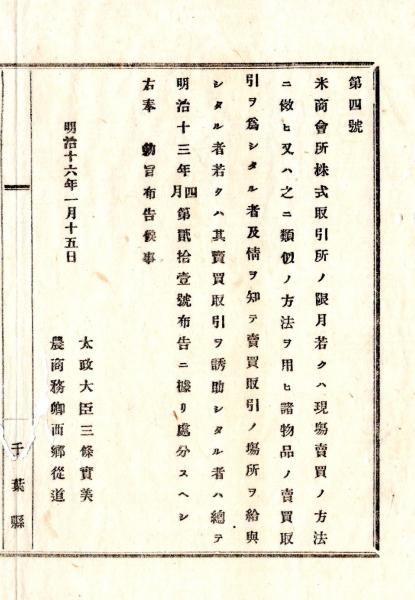 第四號
米商會所株式取引所ノ限月若クハ現塲賣買ノ方法
ニ倣ヒ又ハ之ニ類似ノ方法ヲ用ヒ諸物品ノ賣買取
引ヲ爲シタル者及情ヲ知テ賣買取引ノ塲所ヲ給與
シタル者若クハ其賣買取引ヲ誘助シタル者ハ總テ
明治十三年四月第貳拾壹號布告ニ據リ處分スヘシ
右奉 勅旨布告候事
明治十六年一月十五日
太政大臣三條實美
農商務卿西郷從道
千葉縣